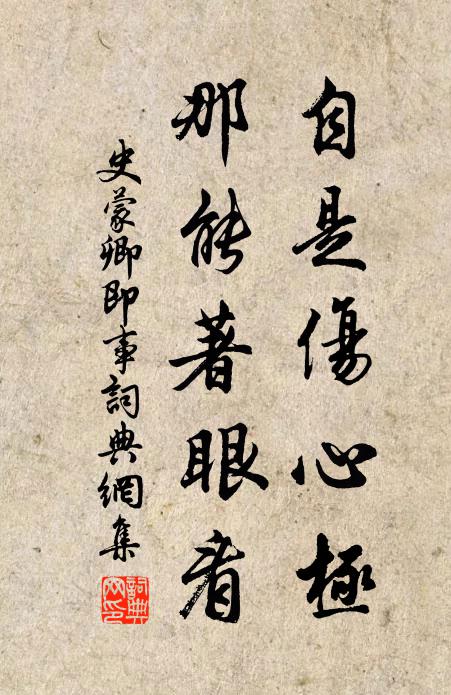 自是傷心極
那能著眼看
史蒙卿即事詞典網集
詞典
网印